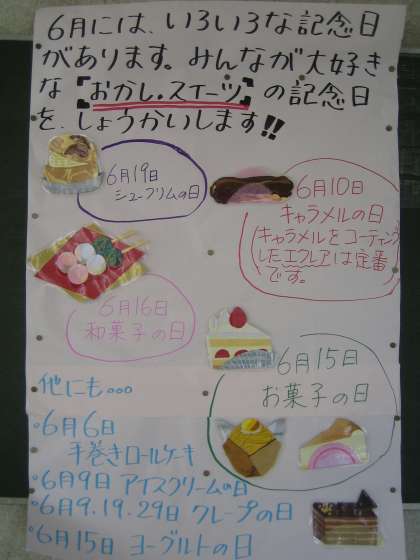 6月には、いろいろな記念日
があります。みんなが大好き
な「おかし・スイーツ」の記念日
を、しょうかいします!!
6月19日
シュークリムの日
6月10日
キャラメルの日
(キャラメルをコーティング
したエクレアは定番
です。
6月16日
和菓子の日
6月15日
お菓子の日
他にも。。。
・6月6日
手巻きロールケキ
・6月9日 アイスクリームの日
・6月9.19.29日 クレープの日
・6月15日 ヨーグルトの日